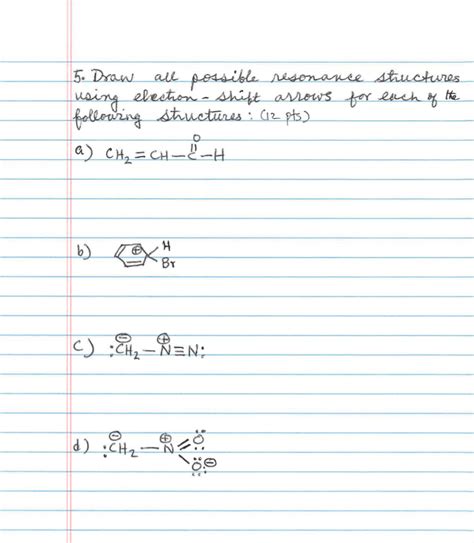 5. Draw all possible resonance structures
using electron-shift arrows for each of the
following structures: (12 pts)
O
a) CH₂=CH-C-H
b) ⊕ H
Br
c) :CH₂⊖-N⊕≡N:
d) :CH₂⊖-N⊕=O
O:⊖